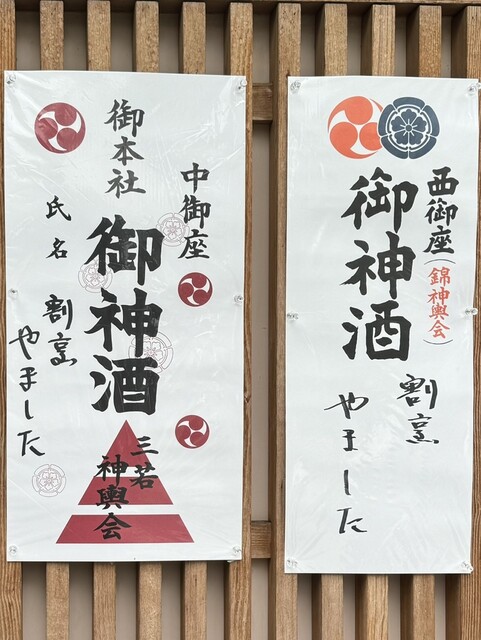 西御座(錦神輿会)
御神酒
割烹
やました
中御座
御本社
御神酒
三若
神輿会
氏名
割烹
やました